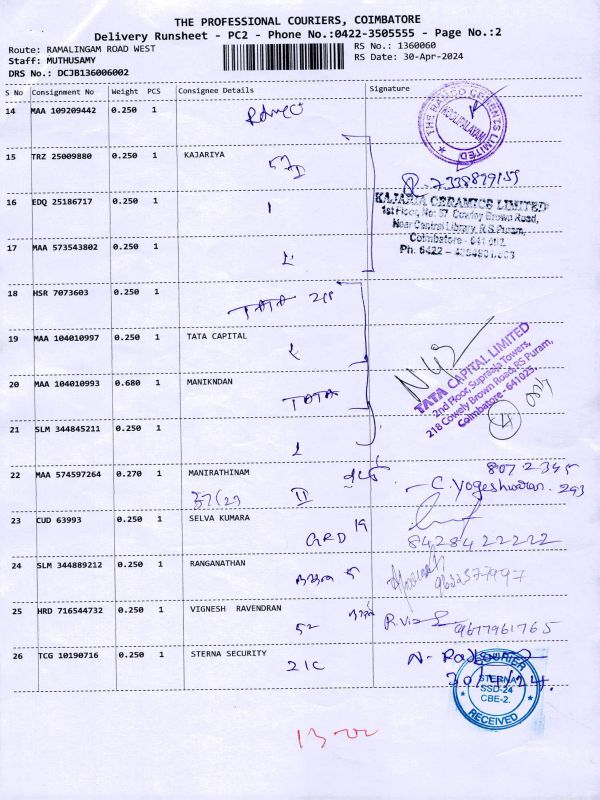 THE PROFESSIONAL COURIERS, COIMBATORE
Delivery Runsheet - PC2 - Phone No.:0422-3505555 - Page No.:2
Route: RAMALINGAM ROAD WEST
Staff: MUTHUSAMY
DRS No.: DCJB136006002
RS No.: 1360060
RS Date: 30-Apr-2024
S No Consignment No Weight PCS Consignee Details Signature
14 MAA 109209442 0.250 1
THE RAMCO CEMENTS LIMITED
15 TRZ 25009880 0.250 1 KAJARIYA
57 I
16 EDQ 25186717 0.250 1
KAJARIA CERAMICS LIMITED
1st Floor, No: 97 Cowley Brown Road,
Near Central Library, R.S.Puram,
Coimbatore - 641 002.
17 MAA 573543802 0.250 1
18 HSR 7073603 0.250 1
TATA 218
19 MAA 104010997 0.250 1 TATA CAPITAL
TATA CAPITAL LIMITED
2nd Floor, Supraja Towers,
218 Cowely Brown Road, RS Puram,
Coimbatore - 641025.
20 MAA 104010993 0.680 1 MANIKNDAN
TATA
21 SLM 344845211 0.250 1
22 MAA 574597264 0.270 1 MANIRATHINAM
37/(23 II
807 2345
C. Yogeshwaran. 293
23 CUD 63993 0.250 1 SELVA KUMARA
GRD 19
8428422222
24 SLM 344889212 0.250 1 RANGANATHAN
25 HRD 716544732 0.250 1 VIGNESH RAVENDRAN
52
9677961765
26 TCG 10190716 0.250 1 STERNA SECURITY
21C
COURIER
STERNA
SSD-24
CBE-2.
RECEIVED